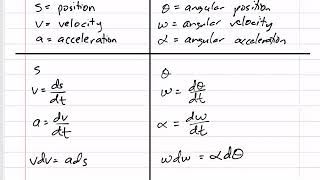 S = position
V = velocity
a = acceleration
θ = angular position
ω = angular velocity
α = angular acceleration
s
v = ds/dt
a = dv/dt
vdv = ads
θ
ω = dθ/dt
α = dω/dt
ωdω = αdθ